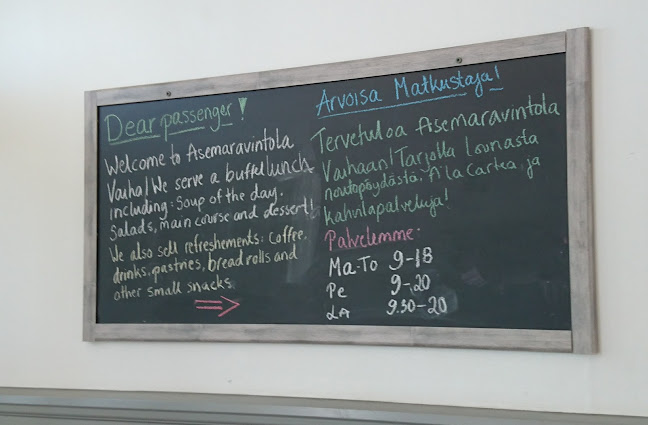 Dear passenger!
Welcome to Asemaravintola
Vauha! We serve a buffet lunch
including: Soup of the day.
Salads, main course and dessert!
We also sell refreshements: Coffee,
drinks, pastries, bread rolls and
other small snacks
Arvoisa Matkustaja!
Tervetuloa Asemaravintola
Vauhaan! Tarjolla Lounasta
noutopöydästä. A'la Cartea, ja
kahvilapalveluja!
Palvelemme.
Ma-To 9-18
Pe 9-20
LA 9.30-20